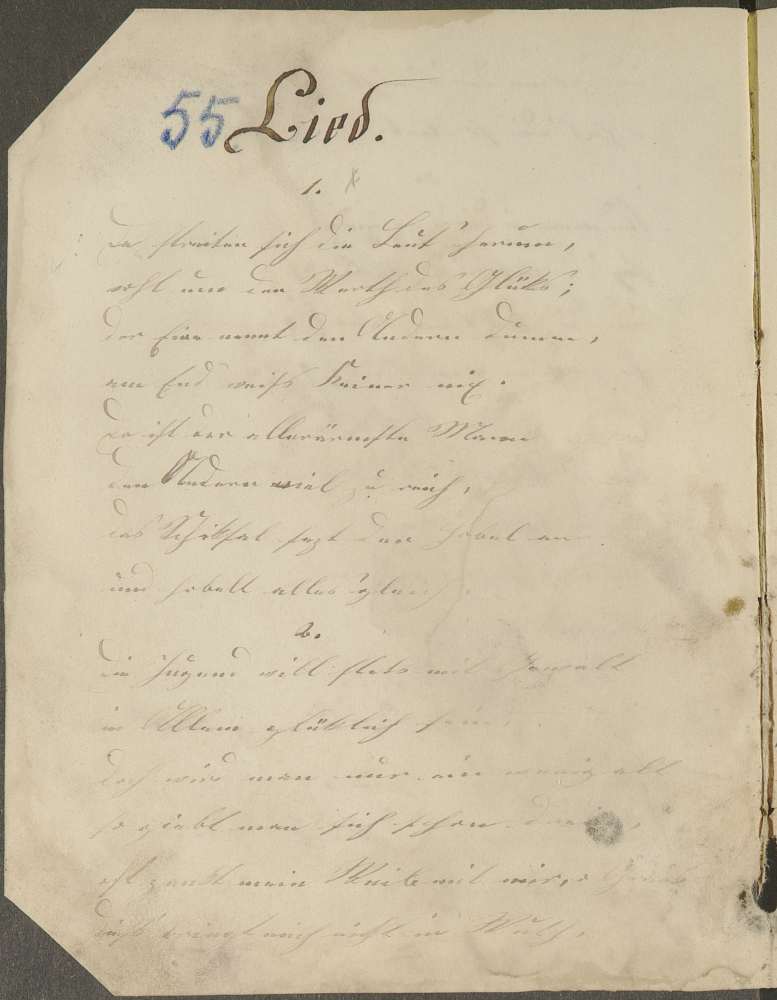 55 Lied.
1.
Da streiten sich die Leut' herum,
wohl um den Werth des Glüks;
der Eine nennt den Andern dumm,
am End weiß Keiner nix.
Da ist der allerärmste Mann
dem Andern viel zu reich,
das Schiksal sezt den Hobel an
und hobelt alles gleich.
2.
Die Jugend will stets mit Gewalt
in Allem glüklich sein,
doch wird man nur ein wenig alt
so giebt man sich schon drein,
oft zankt mein Weib mit mir, o Graus
dieß bringt mich nicht in Wuth,